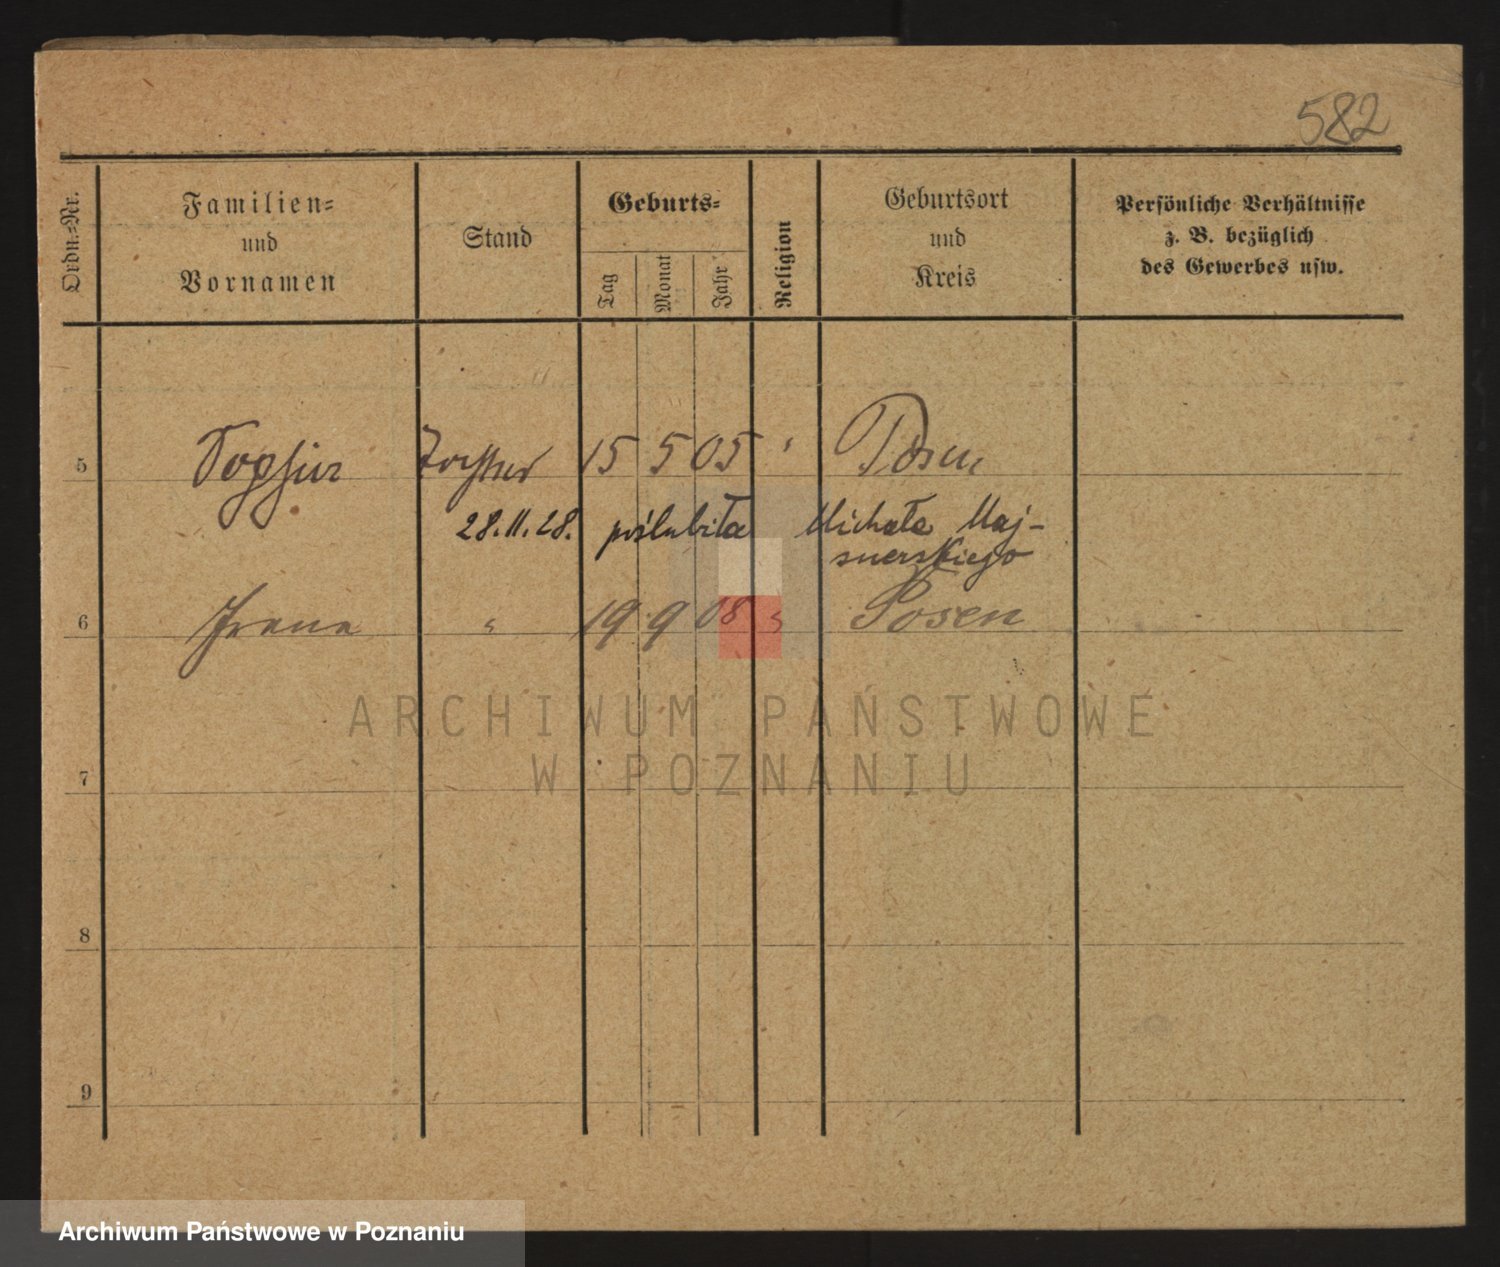 582
Ordn.-Nr.
Familien-
und
Vornamen
Stand
Geburts-
Tag
Monat
Jahr
Religion
Geburtsort
und
Kreis
Persönliche Verhältnisse
z. B. bezüglich
des Gewerbes usw.
5 Tochter 15 5 05 " Posen
28.11.28. poślubiła Michała Maj-
snerskiego
6 Irene " 19 9 08 " Posen
ARCHIWUM PAŃSTWOWE
W POZNANIU
7
8
9
Archiwum Państwowe w Poznaniu